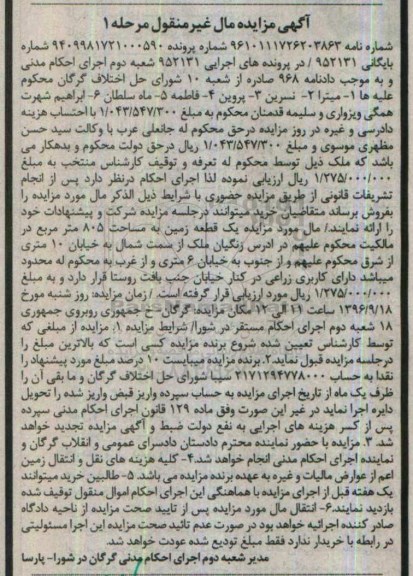 آگهی مزایده مال غیرمنقول مرحله ۱
شماره نامه ۹۶۱۰۱۱۱۷۲۶۲۰۳۸۶۳ شماره پرونده ۹۴۰۹۹۸۱۷۲۱۰۰۰۵۹۰ شماره
بایگانی ۹۵۲۱۳۱ / در پرونده های اجرایی ۹۵۲۱۳۱ شعبه دوم اجرای احکام مدنی
و به موجب دادنامه ۹۶۸ صادره از شعبه ۱۰ شورای حل اختلاف گرگان محکوم
علیه ها ۱- میترا ۲- نسرین ۳- پروین ۴- فاطمه ۵- ماه سلطان ۶- ابراهیم شهرت
همگی ویزواری و سلیمه قدمنان محکوم به مبلغ ۱/۰۴۳/۵۴۷/۳۰۰ با احتساب هزینه
دادرسی و غیره در روز مزایده درحق محکوم له جانعلی عرب با وکالت سید حسن
مظهری موسوی و مبلغ ۱/۰۴۳/۵۴۷/۳۰۰ ریال درحق دولت محکوم و بدهکار می
باشد که ملک ذیل توسط محکوم له تعرفه و توقیف کارشناس منتخب به مبلغ
۱/۲۷۵/۰۰۰/۰۰۰ ریال ارزیابی نموده لذا اجرای احکام درنظر دارد پس از انجام
تشریفات قانونی از طریق مزایده حضوری با شرایط ذیل الذکر مال مورد مزایده را
بفروش برساند متقاضیان خرید میتوانند درجلسه مزایده شرکت و پیشنهادات خود
را ارائه نمایند./ مال مورد مزایده یک قطعه زمین به مساحت ۸۰۵ متر مربع در
مالکیت محکوم علیهم در ادرس زنگیان ملک از سمت شمال به خیابان ۱۰ متری
از شرق محکوم علیهم و از جنوب به خیابان ۶ متری و از غرب به محکوم له محدود
میباشد دارای کاربری زراعی در کنار خیابان جنب بافت روستا قرار دارد و به مبلغ
۱/۲۷۵/۰۰۰/۰۰۰ ریال مورد ارزیابی قرار گرفته است. / زمان مزایده: روز شنبه مورخ
۱۳۹۶/۹/۱۸ ساعت ۱۱ الی ۱۲ مکان مزایده: گرگان- خ جمهوری روبروی جمهوری
۱۸ شعبه دوم اجرای احکام مستقر در شورا/ شرایط مزایده ۱. مزایده از مبلغی که
توسط کارشناس تعیین شده شروع برنده مزایده کسی است که بالاترین مبلغ را
درجلسه مزایده قبول نماید ۲. برنده مزایده میبایست ۱۰ درصد مبلغ مورد پیشنهاد را
نقدا به حساب ۲۱۷۱۲۹۴۷۷۸۰۰۰ سیبا شورای حل اختلاف گرگان و ما بقی آن را
ظرف یک ماه از تاریخ اجرای مزایده به حساب سپرده واریز قبض واریز شده را تحویل
دایره اجرا نماید در غیر این صورت وفق ماده ۱۲۹ قانون اجرای احکام مدنی سپرده
پس از کسر هزینه های اجرایی به نفع دولت ضبط و آگهی مزایده تجدید خواهد
شد. ۳. مزایده با حضور نماینده محترم دادستان دادسرای عمومی و انقلاب گرگان و
نماینده اجرای احکام مدنی انجام خواهد شد. ۴- کلیه هزینه های نقل و انتقال زمین
اعم از عوارض مالیات و غیره به عهده برنده مزایده می باشد. ۵- طالبین خرید میتوانند
یک هفته قبل از اجرای مزایده با هماهنگی این اجرای احکام اموال منقول توقیف شده
بازدید نمایند. ۶- انتقال مال مورد مزایده پس از تایید صحت مزایده از ناحیه دادگاه
صادر کننده اجرائیه خواهد بود در صورت عدم تائید صحت مزایده این اجرا مسئولیتی
در رابطه با خریدار ندارد فقط مبلغ تودیع شده عودت خواهد شد.
مدیر شعبه دوم اجرای احکام مدنی گرگان در شورا- پارسا